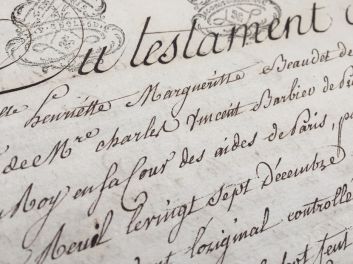 Du testament
Henriette Margueritte Beaudet de
de Mre Charles Vincent Barbier de
Roy en sa Cour des aides de Paris,
levingt Sept Décembre
l'original controllé